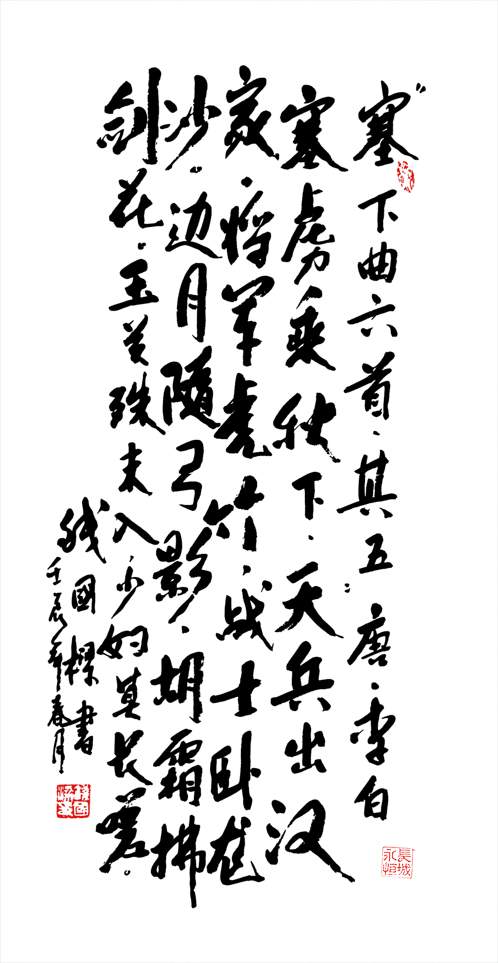 塞下曲六首·其五：唐·李白
塞虏乘秋下，天兵出汉
家。将军虎竹，战士卧龙
沙。边月隨弓影，胡霜拂
剑花。玉关殊未入，少妇莫长嗟。
國樑書
壬辰年春月
長城永恒